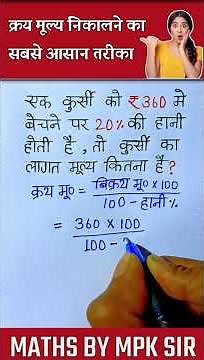 क्रय मूल्य निकालने का
सबसे आसान तरीका
एक कुर्सी को ₹360 मे
बेचने पर 20% की हानी
होती है, तो कुर्सी का
लागत मूल्य कितना है?
क्रय मू० = बिक्रय मू० × 100
100 - हानी%
= 360 × 100
100 -
MATHS BY MPK SIR